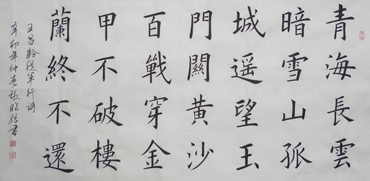 青海長雲
暗雪山孤
城遥望玉
門關黄沙
百戰穿金
甲不破樓
蘭終不還
王昌齡從軍行詩
辛卯年仲冬張書